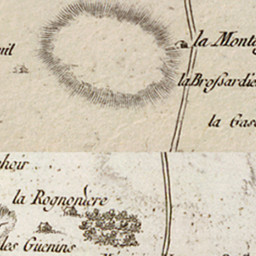 la Monta
la Brossardie
la Gas
la Rognonere
des Guenins